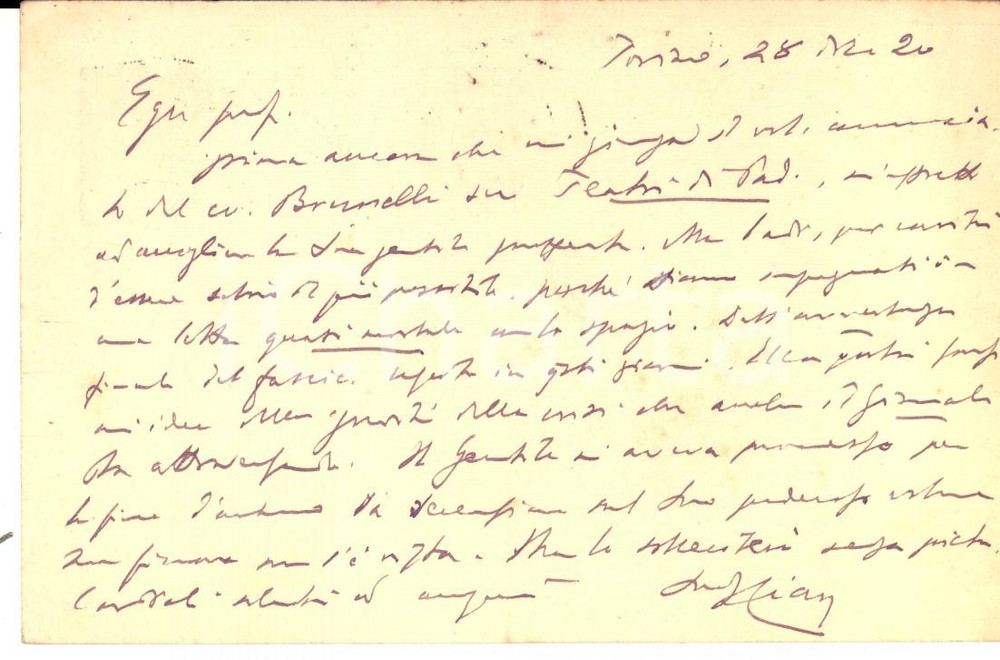 Torino, 28 dic 20
Egr. prof.
prima ancora che mi giunga il vol. annuncia-
to del cv. Brunelli su Teatri di Pad., m'affretto
ad accogliere la Sua gentile proposta. Ma badi, per carità
d'essere sobrio il più possibile, perché siamo impegnati in
una lotta quasi mortale con lo spazio. Dall'avvertenza
finale del fascic. uscito in questi giorni, Ella potrà farsi
un'idea della gravità della crisi che anche il Giornale
sta attraversando. Il Gentile mi aveva promesso per
la fine d'autunno la recensione sul Suo poderoso volume
ma finora non s'è vista. Ma lo solleciterò senza pietà.
Cordiali saluti ed auguri
Cian